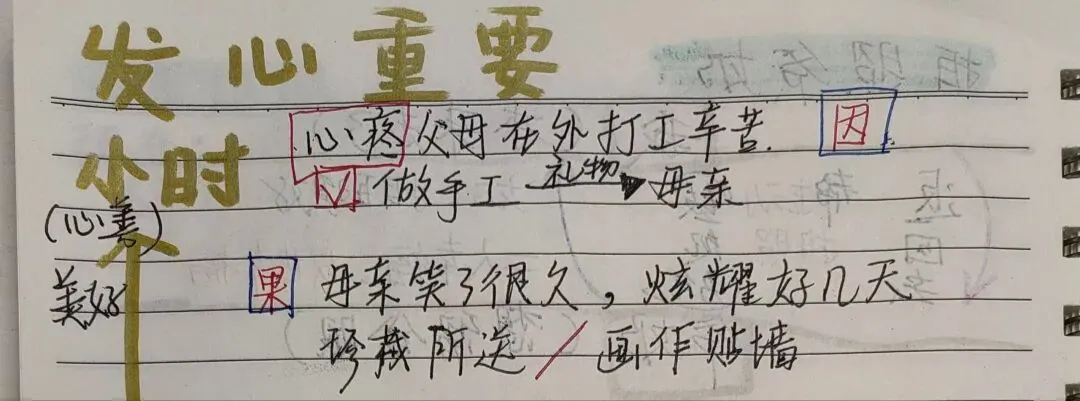 发心重要
心疼父母在外打工辛苦. 因
小时
做手工 礼物 母亲
(心善)
美好
果 母亲笑了很久，炫耀好几天
珍藏所送/画作贴墙